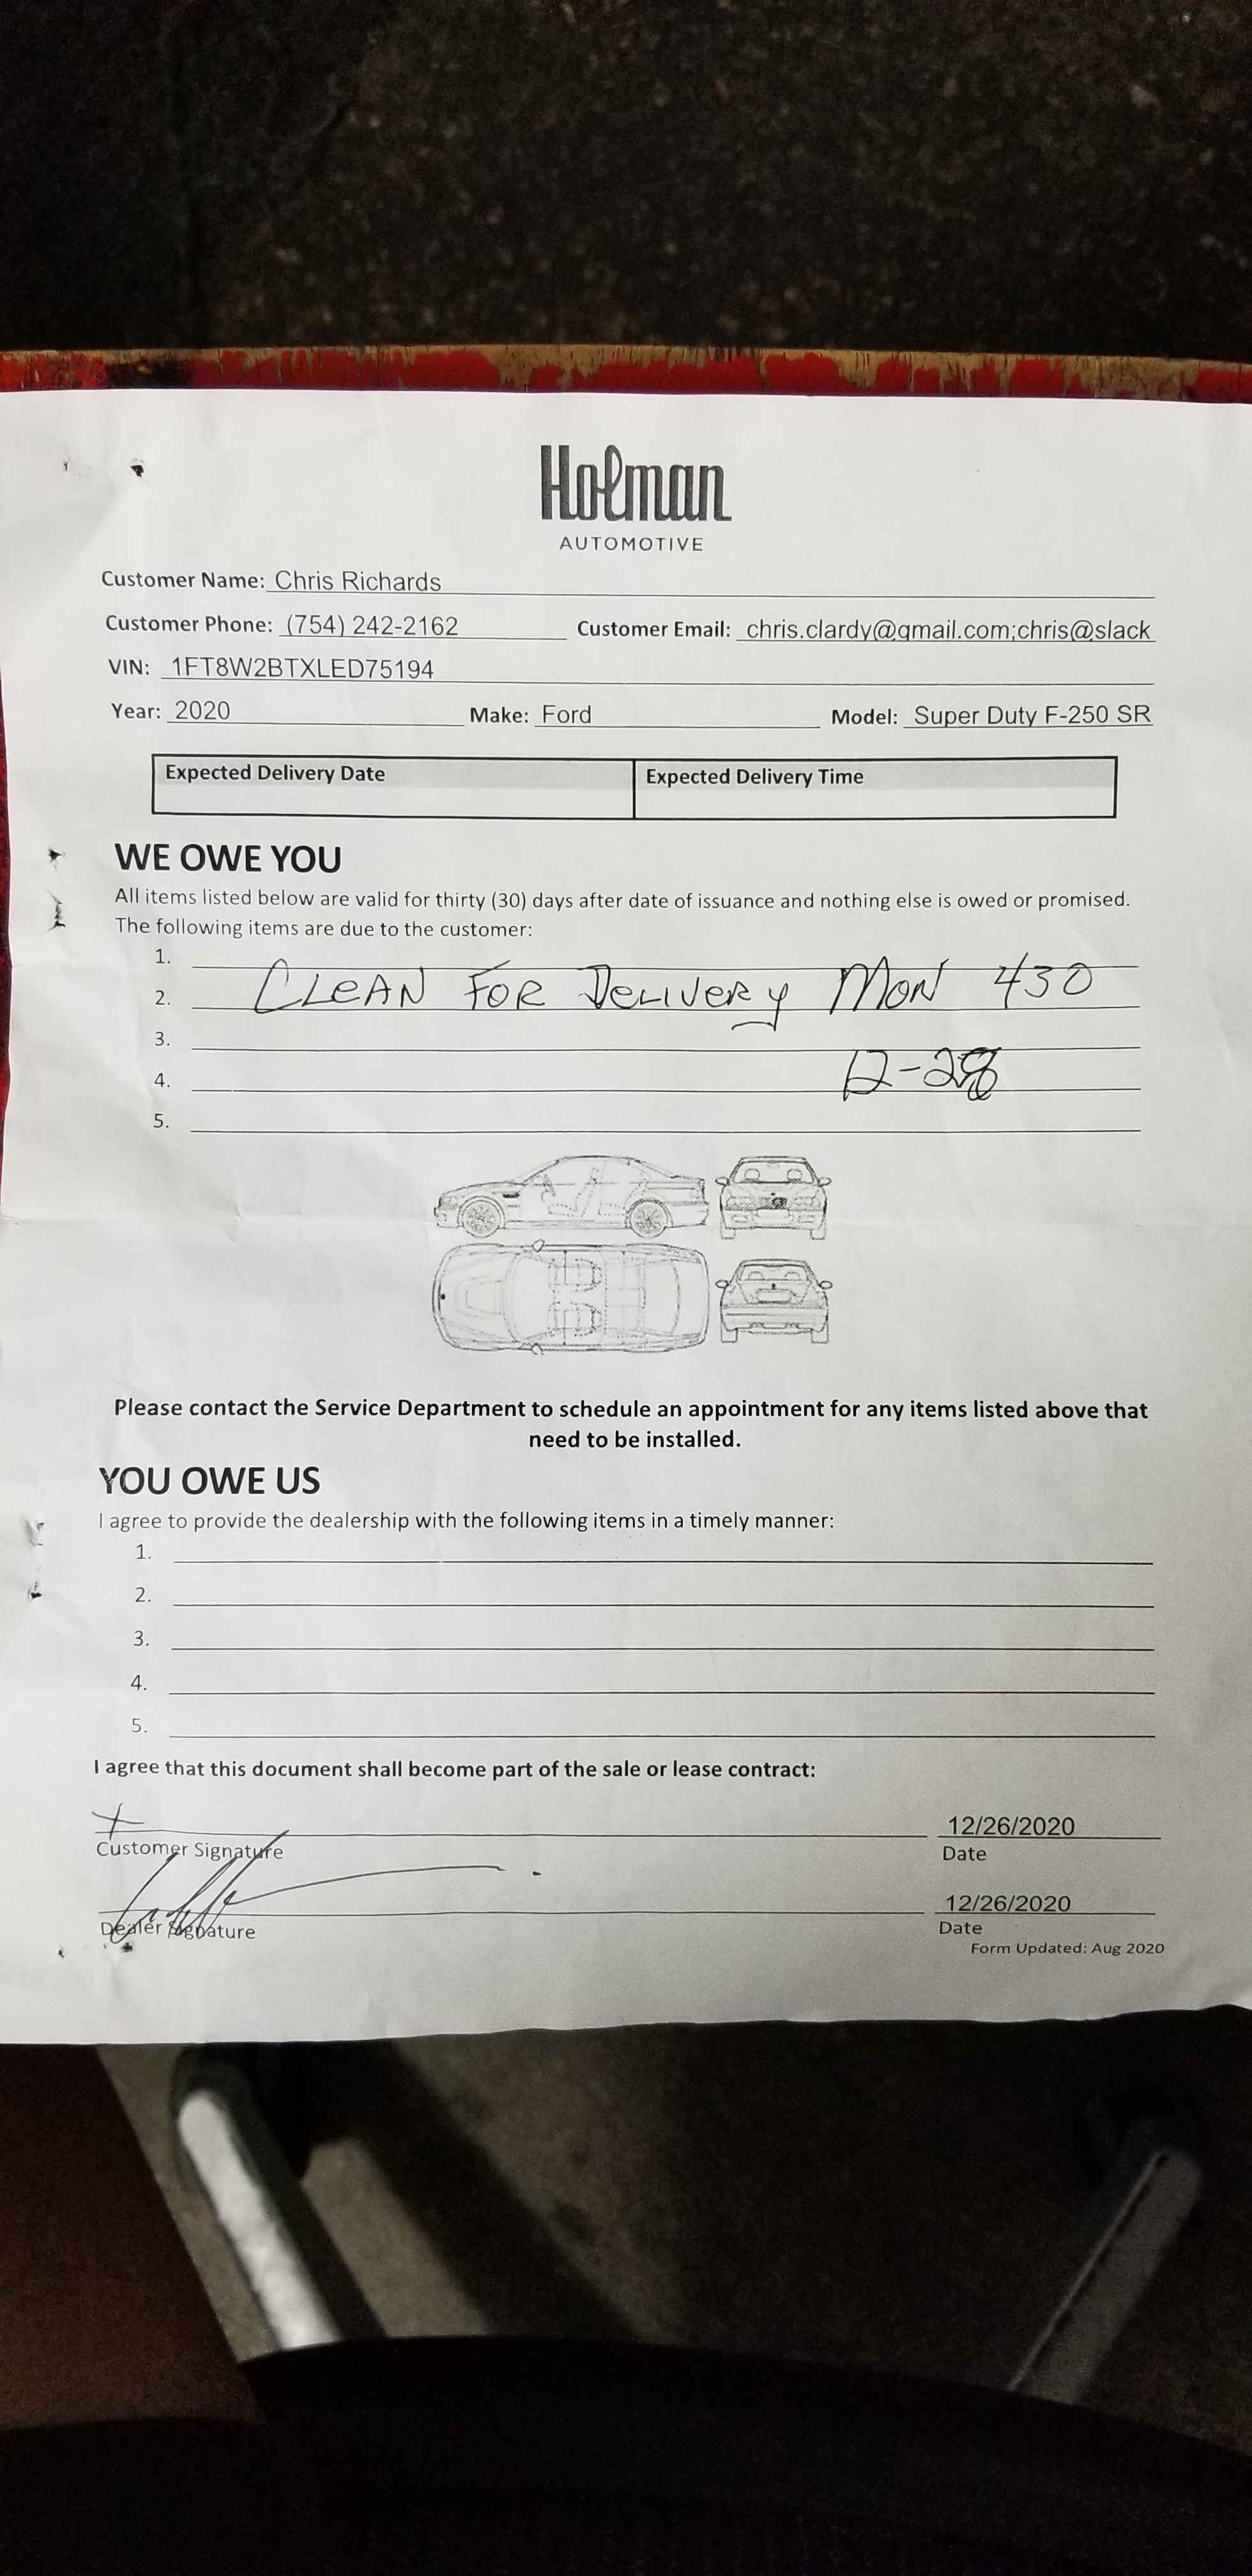 Holman
AUTOMOTIVE
Customer Name: Chris Richards
Customer Phone: (754) 242-2162 Customer Email: chris.clardy@gmail.com;chris@slack
VIN: 1FT8W2BTXLED75194
Year: 2020 Make: Ford Model: Super Duty F-250 SR
Expected Delivery Date Expected Delivery Time
WE OWE YOU
All items listed below are valid for thirty (30) days after date of issuance and nothing else is owed or promised.
The following items are due to the customer:
1.
2. CLEAN FOR DELIVERY MON 430
3.
4. 12-28
5.
Please contact the Service Department to schedule an appointment for any items listed above that
need to be installed.
YOU OWE US
I agree to provide the dealership with the following items in a timely manner:
1.
2.
3.
4.
5.
I agree that this document shall become part of the sale or lease contract:
12/26/2020
Customer Signature Date
12/26/2020
Dealer Signature Date
Form Updated: Aug 2020